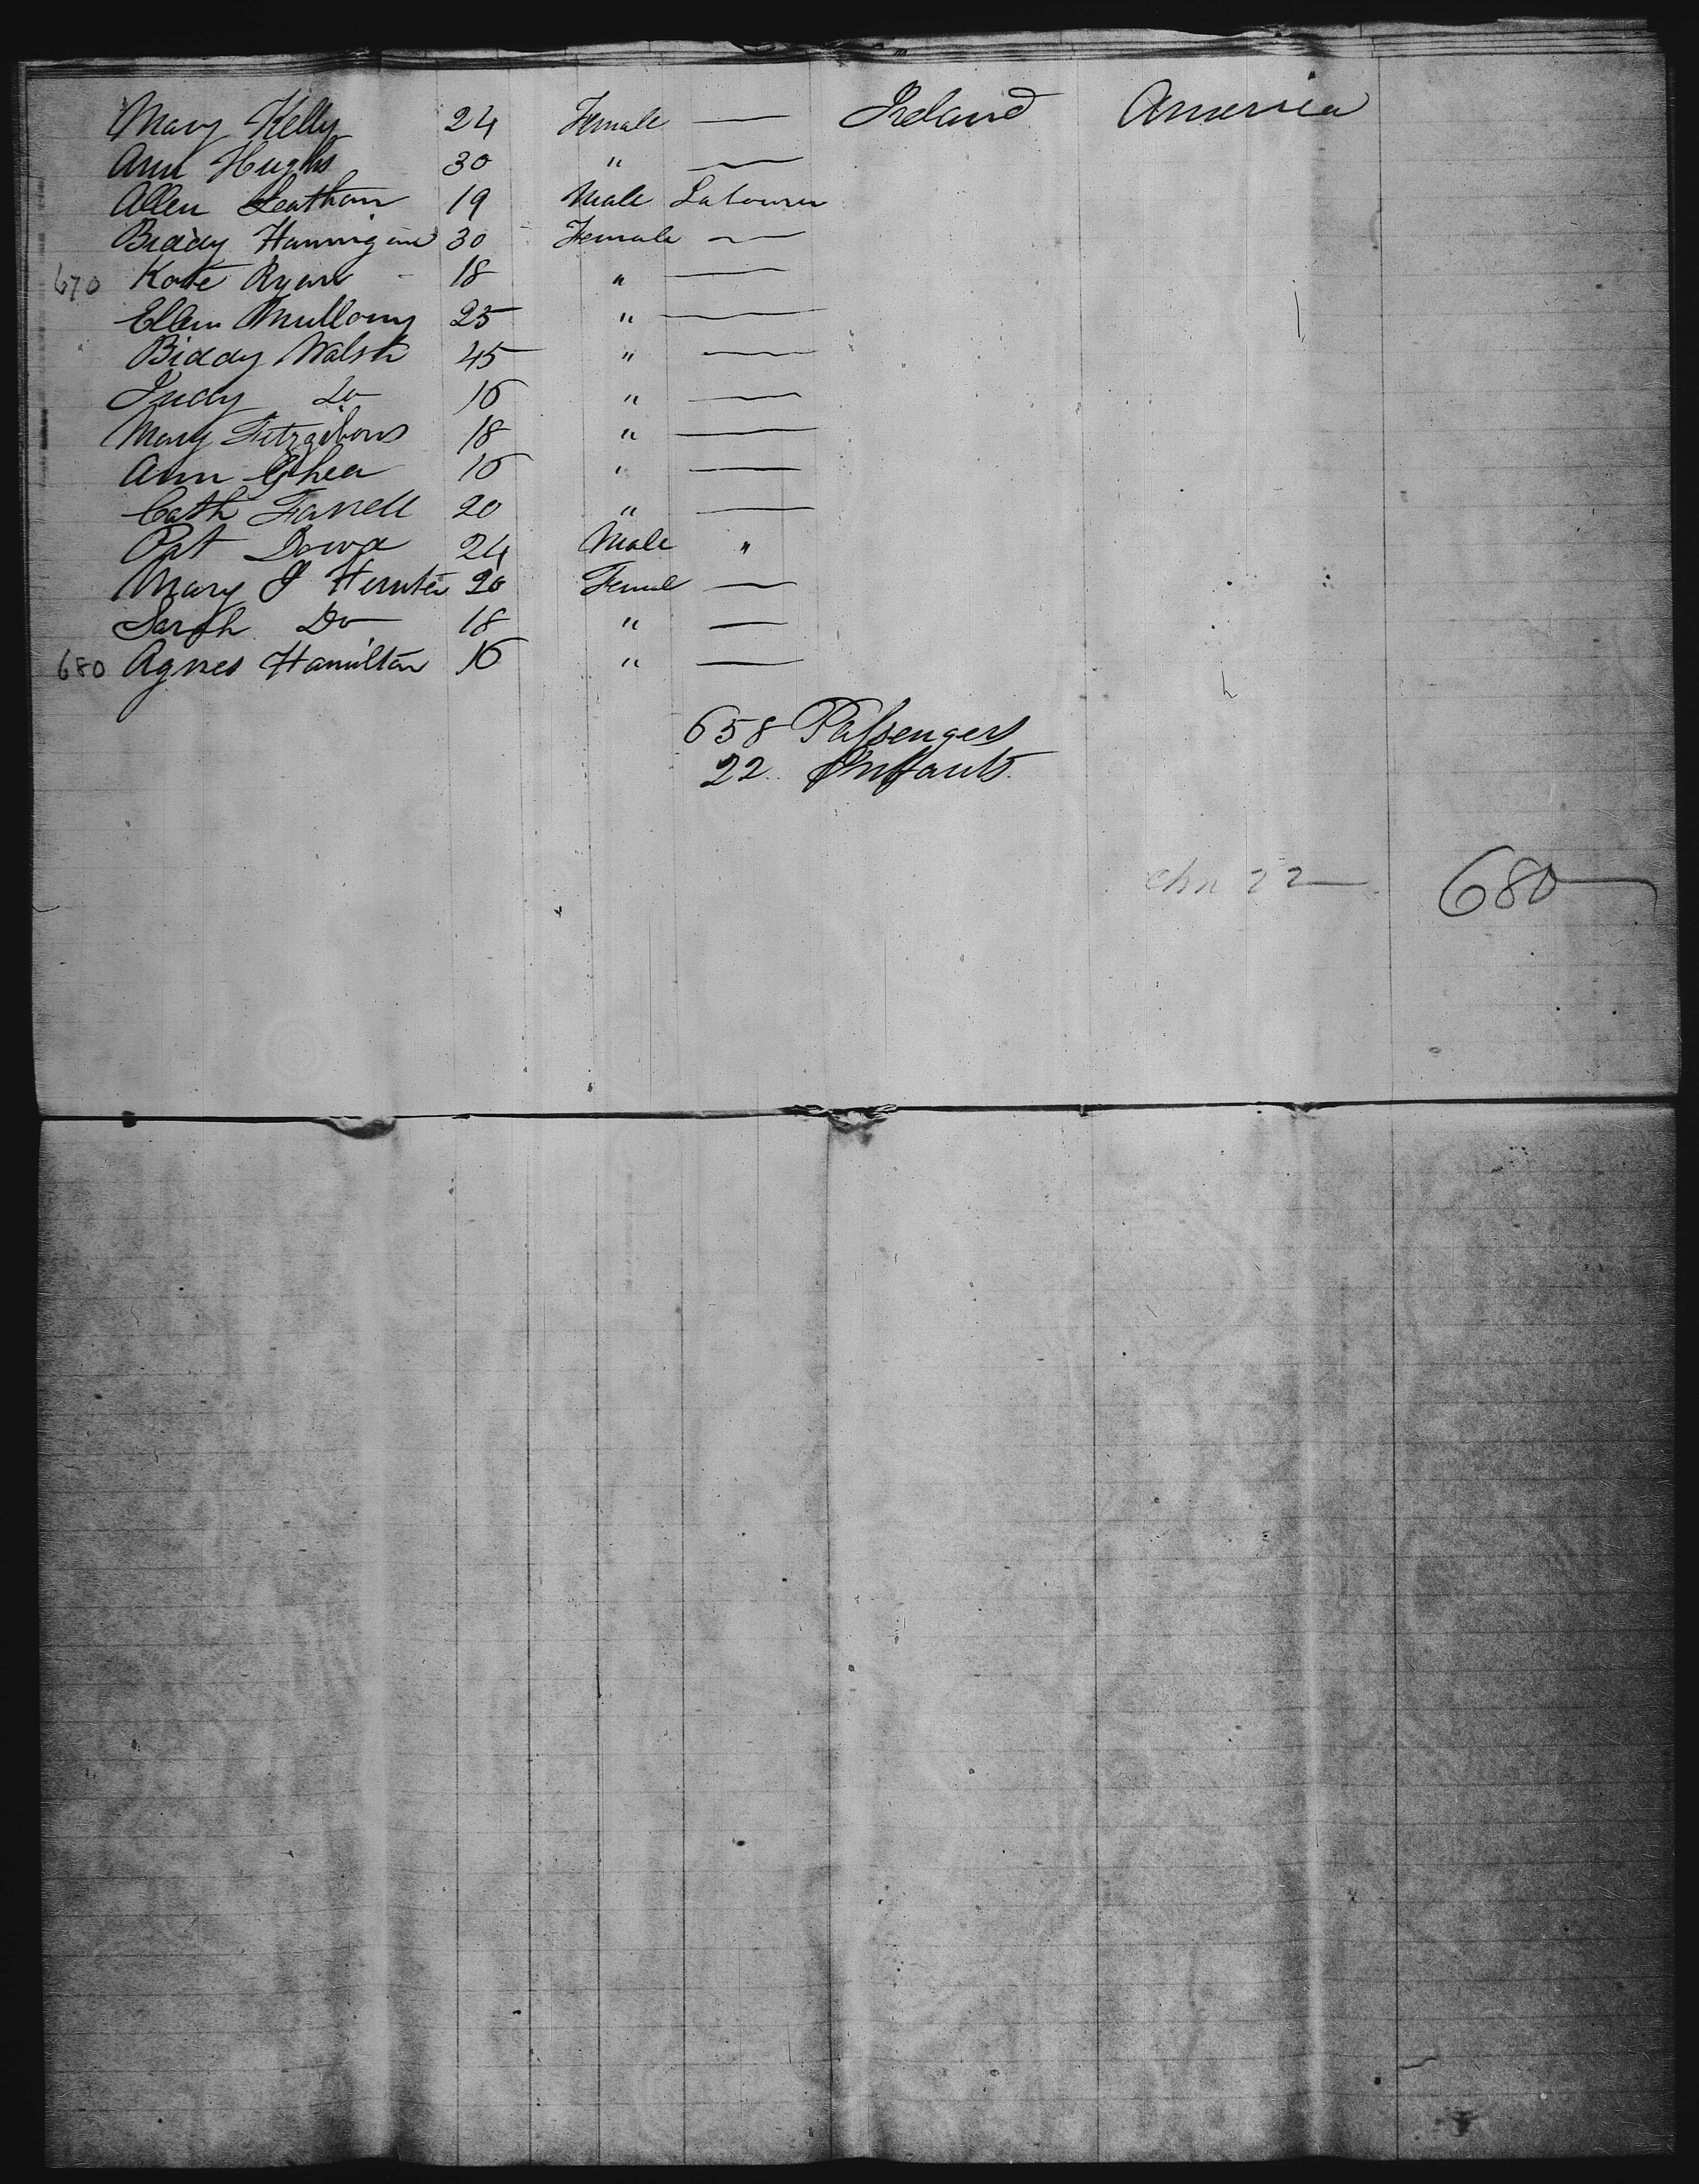 Mary Kelly 24 Female — Ireland America
Ann Hughs 30 " —
Allen Leatham 19 Male Labourer
Biddy Hannigan 30 Female —
670 Kate Ryan 18 " —
Ellen Mullony 25 " —
Biddy Walsh 45 " —
Judy Do 16 " —
Mary Fitzgibons 18 " —
Ann 16 " —
Cath Farrell 20 " —
Pat 24 Male "
Mary J Hunter 20 Femal —
Sarah Do 18 " —
680 Agnes Hamilton 16 " —
658 Passengers
22 Infants
chn 22 — 680